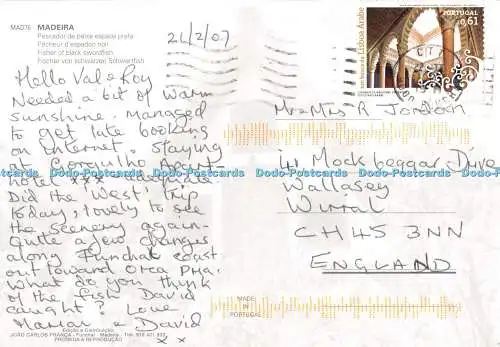 MAD76 MADEIRA
Pescador de peixe espada preto
Pêcheur d'espadon noir
Fisher of black swordfish
Fischer von schwarzen Schwertfisch
21/2/07
PORTUGAL
€0,61
Lisboa Árabe
Hello Val & Roy
Needed a bit of warm
sunshine. Managed
to get late booking
on Internet. Staying
at Gorgulho Apart-
hotel ***
Did the 'West' trip
today, lovely to see
the scenery again.
Quite a few changes
along Funchal coast
out toward Orca Pria.
What do you think
of the fish David
caught! Love
Marian & David
x x
Mr & Mrs R Jordan
41 Mockbeggar Drive
Wallasey
Wirral
CH45 3NN
ENGLAND
MADE
IN
PORTUGAL
Edição e Distribuição
JOÃO CARLOS FRANÇA - Funchal - Madeira
PROIBIDA A REPRODUÇÃO
Dodo-Postcards Dodo-Postcards Dodo-Postcards Dodo-Postcards Dodo-Postcards